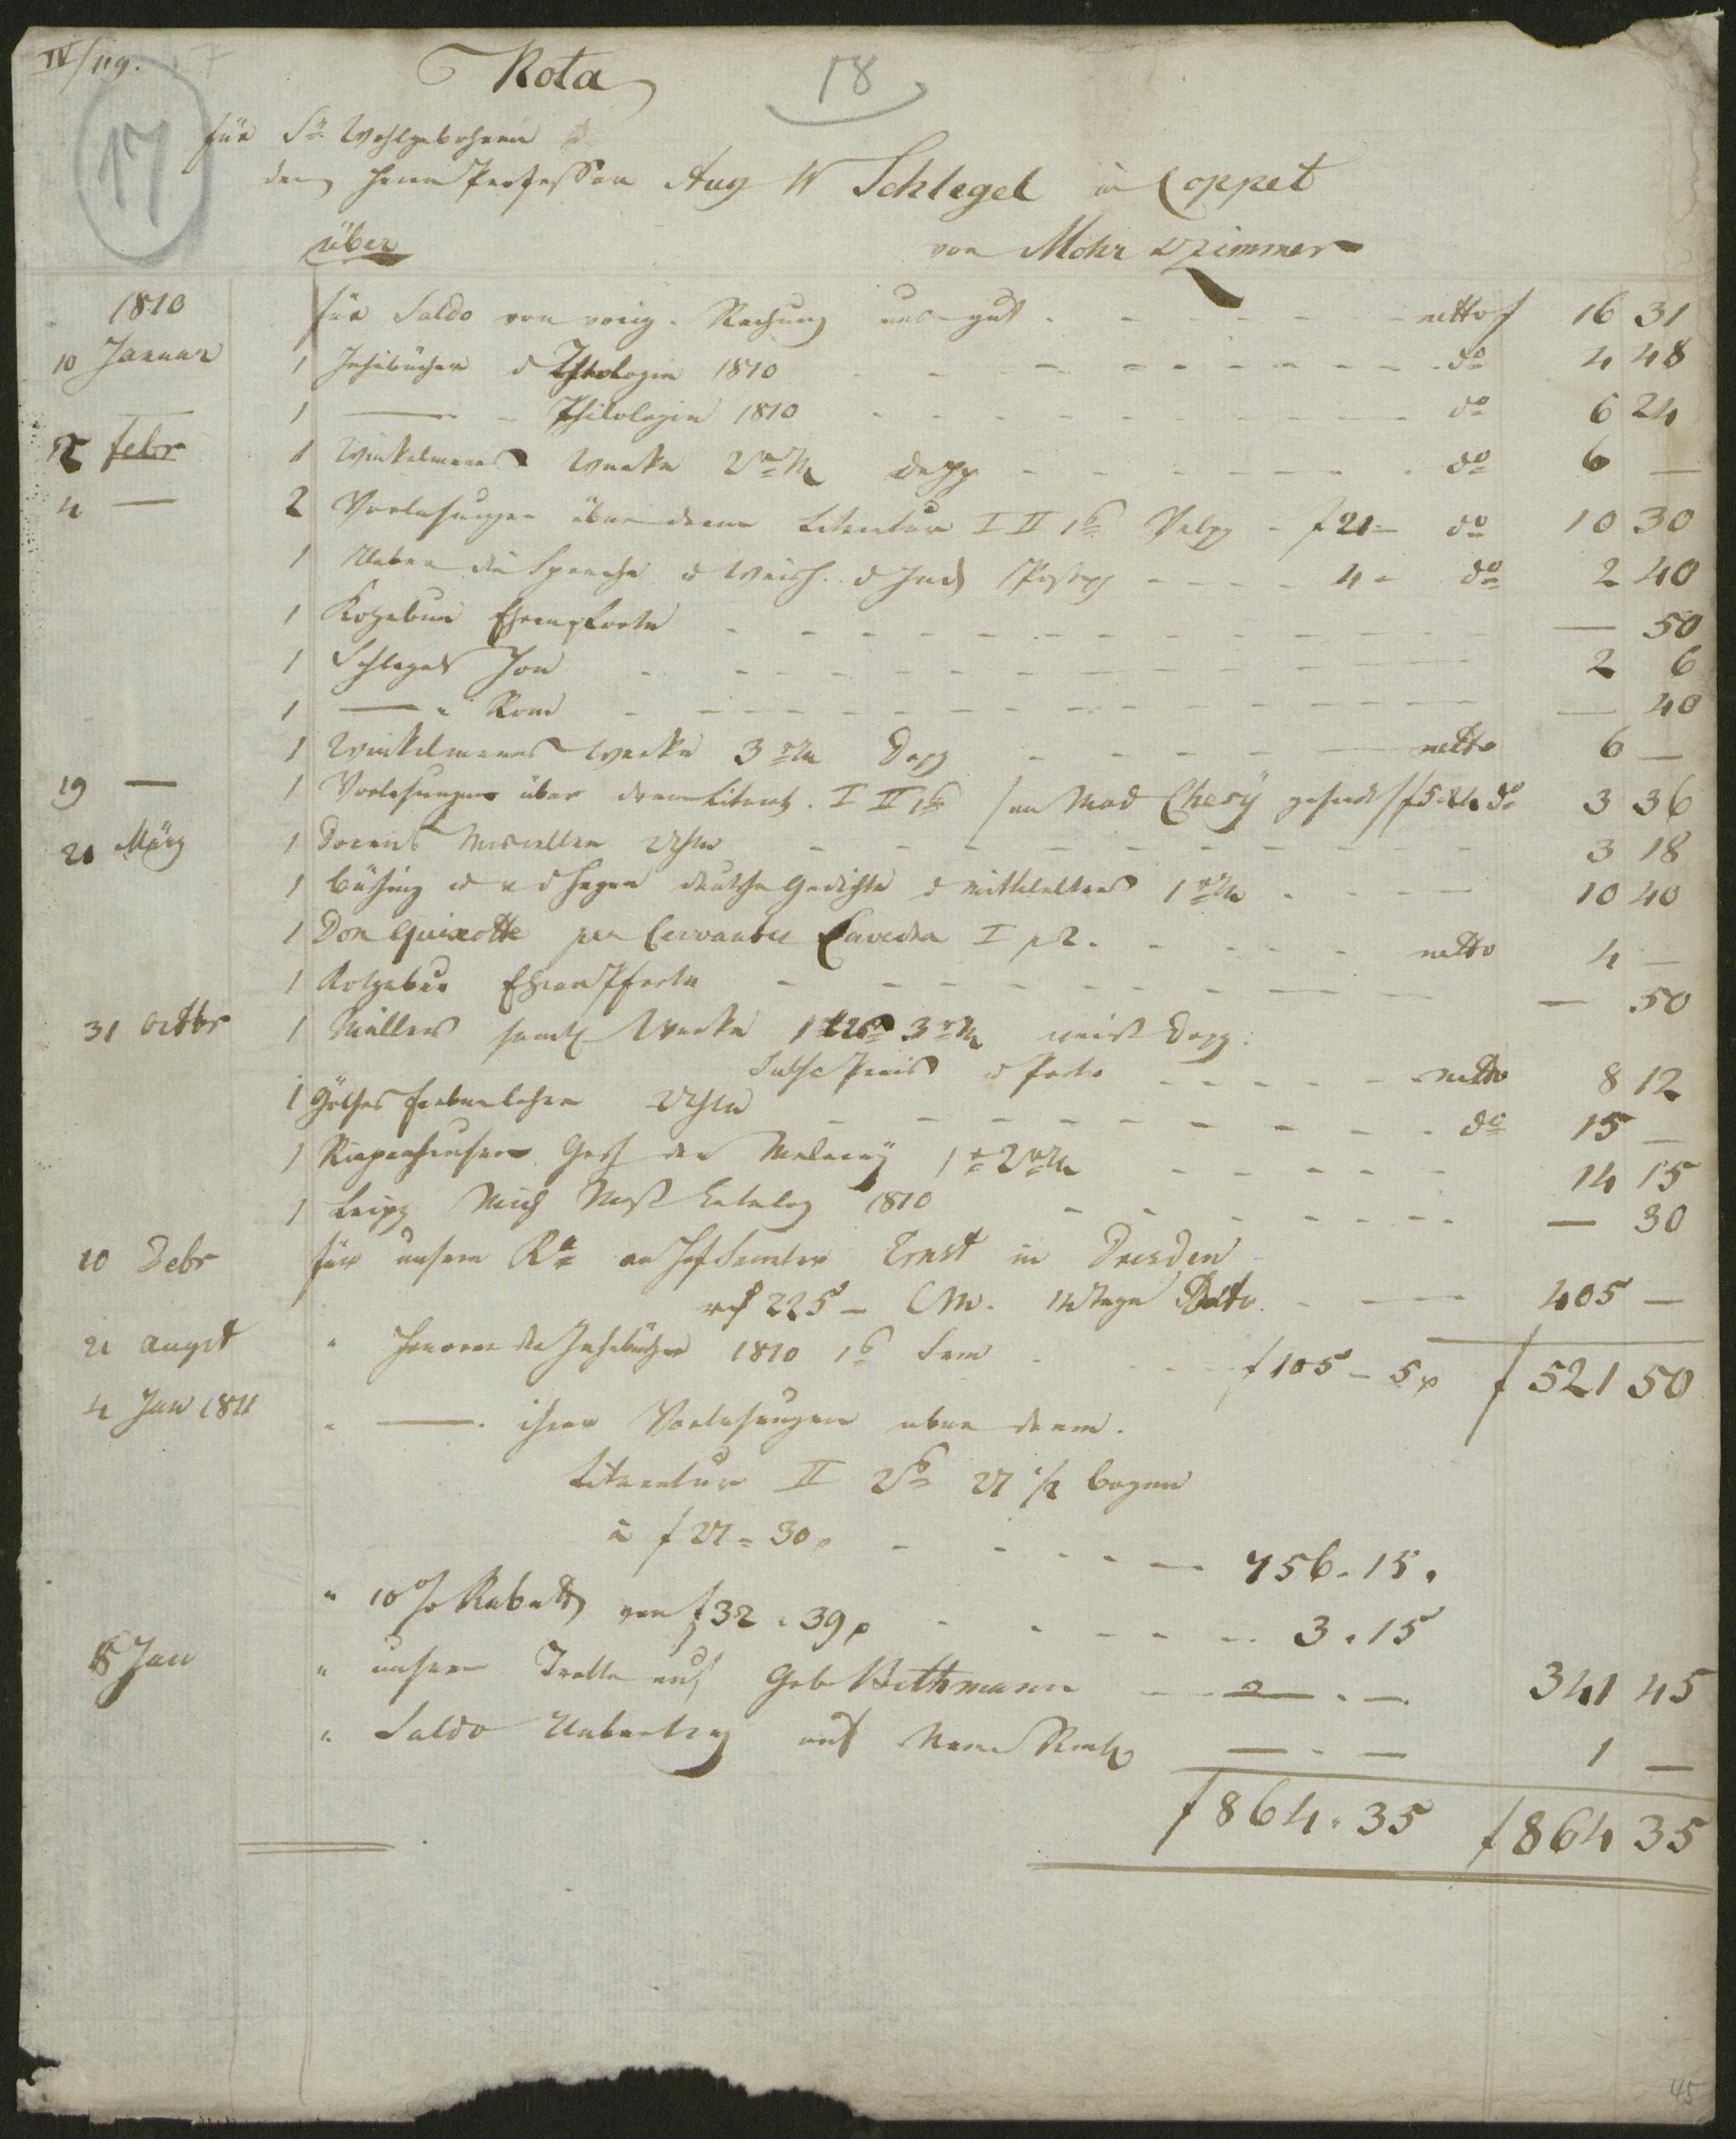 IV/119.
17
18
Nota
für Sr Wohlgebohren
den Herrn Professor Aug W Schlegel in Coppet
über von Mohr u Zimmer
1810 für Saldo von vorig. Rechnung uns gut - - - netto f 16 31
10 Januar 1 Jahrbücher d Theologie 1810 - - - do 4 48
1 — - Philologie 1810 - - - do 6 24
2 Febr 1 Winkelmanns Werke 2r Th - - - do 6 —
4 — 2 Vorlesungen über dram Literatur I II 1e Velpp - f 21 - do 10 30
1 Ueber die Sprache u Weish. d Ind Postpp - - - 4 - do 2 40
1 Kotzebue Ehrenpforte - - - — 50
1 Schlegels Jon - - - 2 6
1 — " Rom - - - — 40
1 Winkelmanns Werke 3r Th - - - netto 6 —
19 — 1 Vorlesungen über dram Literat. I II 1e (an Mad Chesÿ gesendt) f 5.24 do 3 36
21 März 1 Docens Miscellen 2 Thle - - - 3 18
1 Büsching u v d Hagen deutsche Gedichte d Mittelalters 1r Th - - - 10 40
1 Don Quixotte par Cervantes Saavedra I p 2. - - - netto 4 —
1 Kotzebue Ehrenpforte - - - — 50
31 Octbr 1 Müllers sämtl Werke 1 2 3r Th weiß Dpp:
Subsc Preis u Porto - - - netto 8 12
1 Göthes Farbenlehre 2 Thle - - - do 15 —
1 Riepenhausen Gesch der Malereÿ 1r 2r Th - - - 14 15
1 Leipz Mich Meß Catalog 1810 - - - — 30
10 Debr für unsere Re an Hof Ernst in Dresden
225 — CM. 14 Tage Dato - - - 405 —
21 Augst " Honorar der Jahrbücher 1810 1s Sem - - - f 105 - 5 f 521 50
4 Jan 1811 " — ihrer Vorlesungen über dram.
Literatur II 2e 27 1/2 Bogen
à f 27 = 30 - - - 756. 15.
" 10 % Rabatt von f 32. 39 - - - 3. 15
5 Jan " unsere Tratte auf Geb Bethmann — . — 341 45
" Saldo Uebertrag auf Neue Rech — . — 1 —
f 864. 35 f 864 35
45